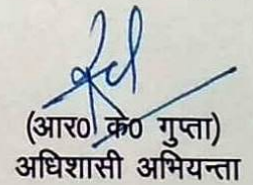 (आर0 के0 गुप्ता)
अधिशासी अभियन्ता